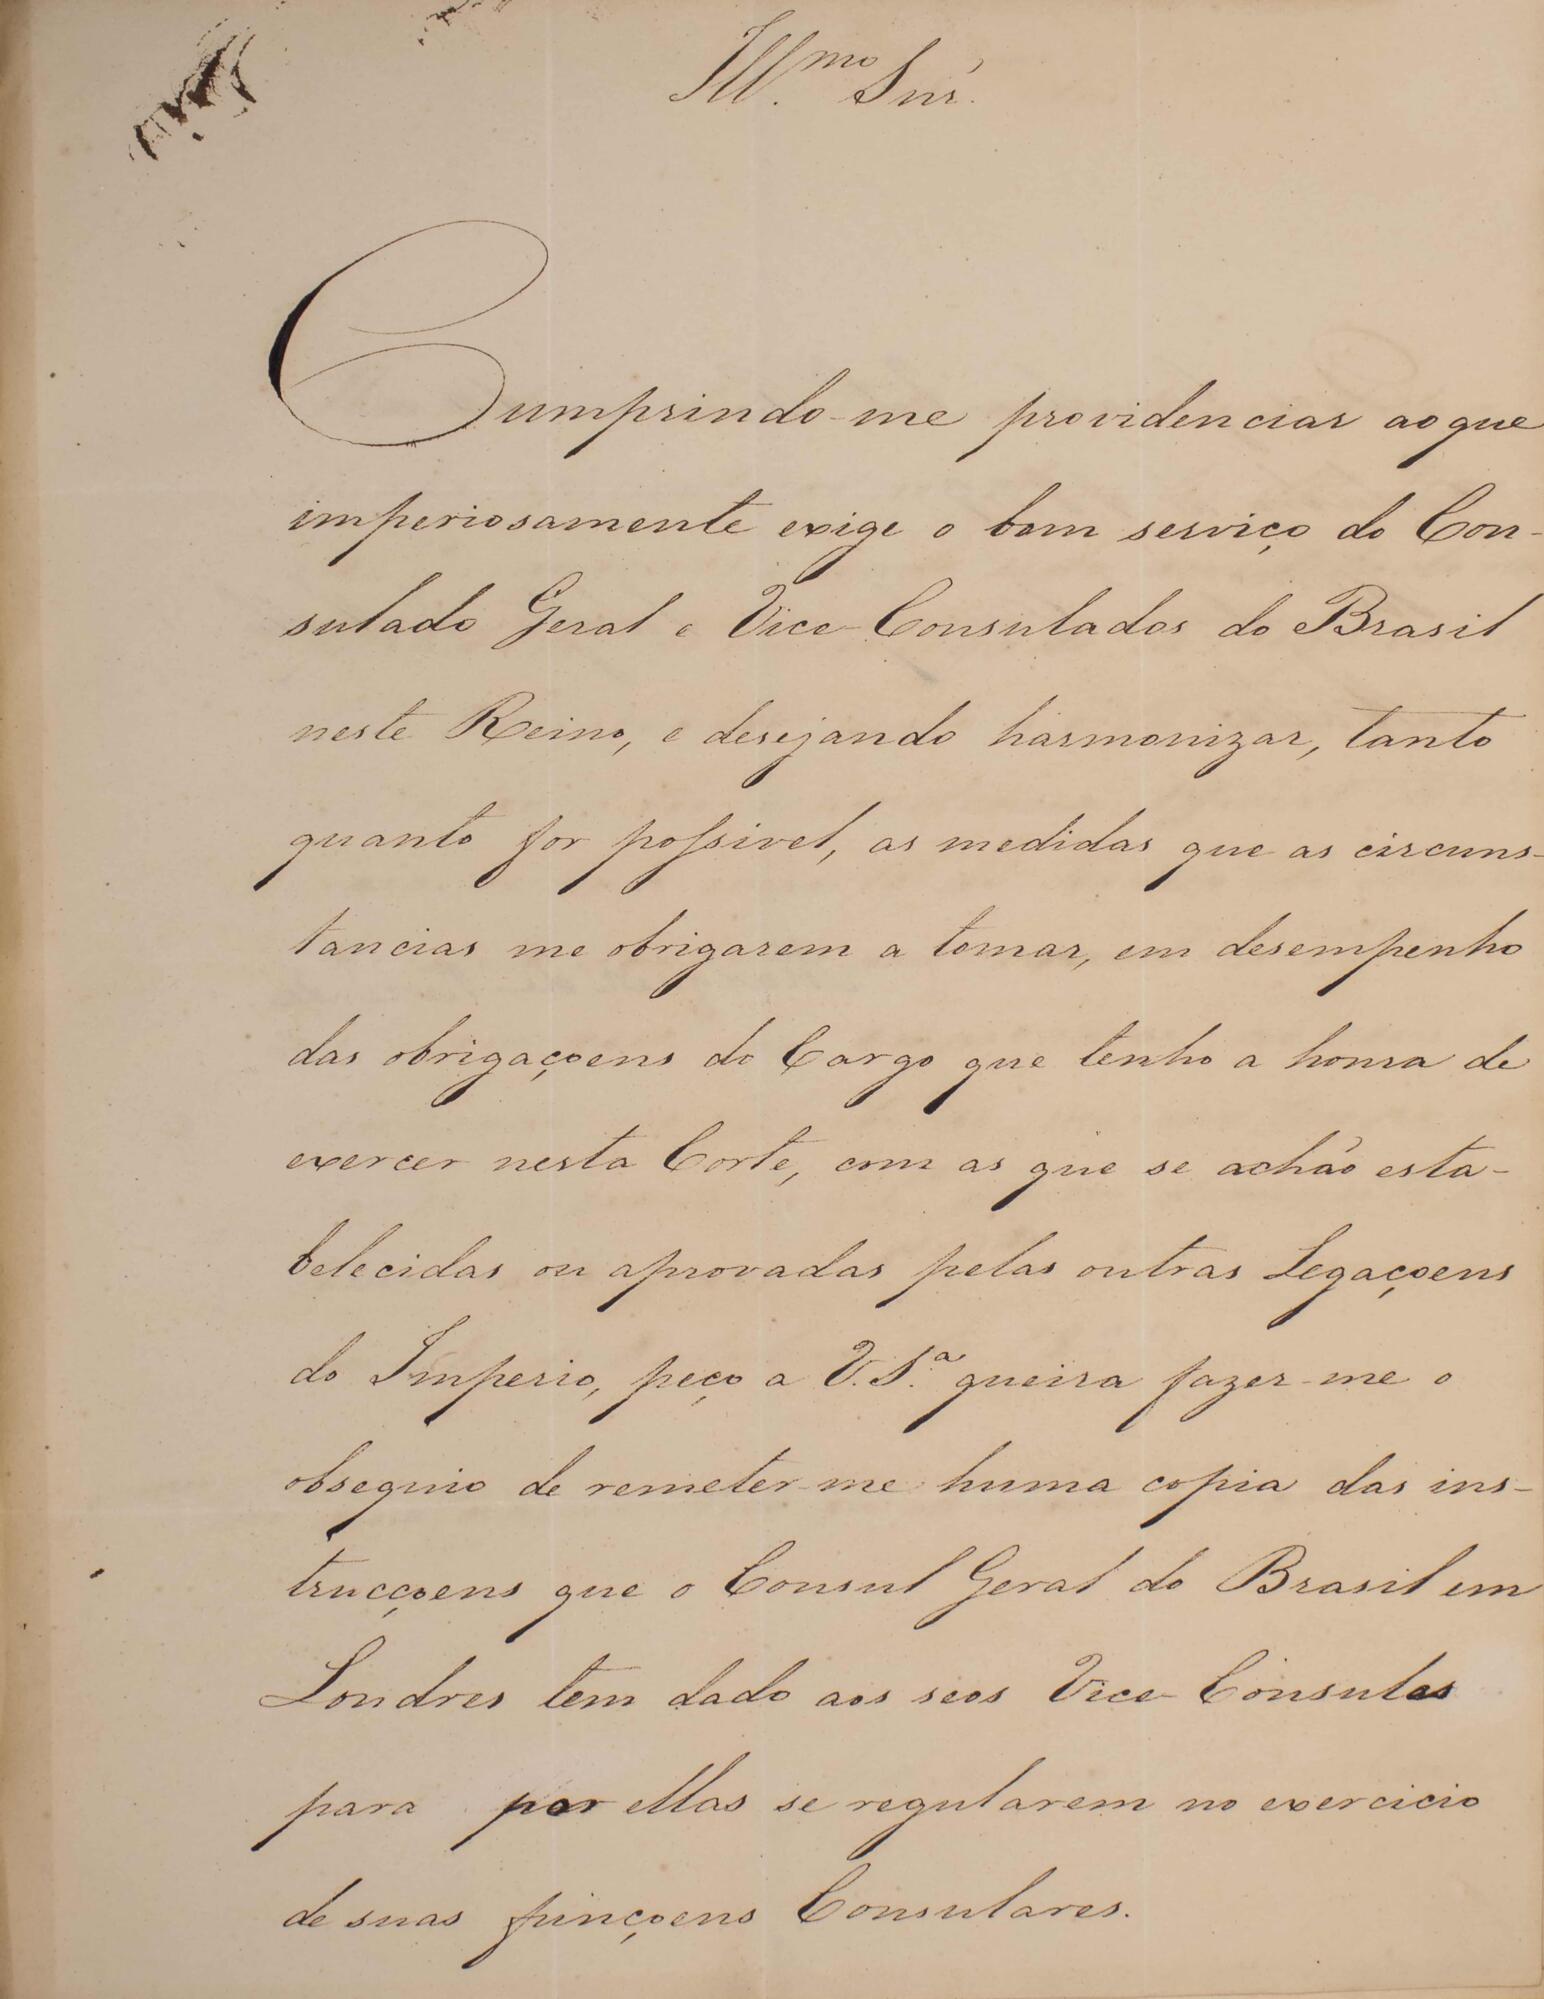 Ill.mo Snr.
Cumprindo-me providenciar ao que
imperiosamente exige o bom serviço do Con-
sulado Geral e Vice-Consulados do Brasil
neste Reino, e desejando harmonizar, tanto
quanto for possivel, as medidas que as circuns-
tancias me obrigarem a tomar, em desempenho
das obrigaçoens do Cargo que tenho a honra de
exercer nesta Corte, com as que se achão esta-
belecidas ou aprovadas pelas outras Legaçoens
do Imperio, peço a V. S.a queira fazer-me o
obsequio de remeter-me huma copia das ins-
trucçoens que o Consul Geral do Brasil em
Londres tem dado aos seos Vice-Consules
para por ellas se regularem no exercicio
de suas funçoens Consulares.